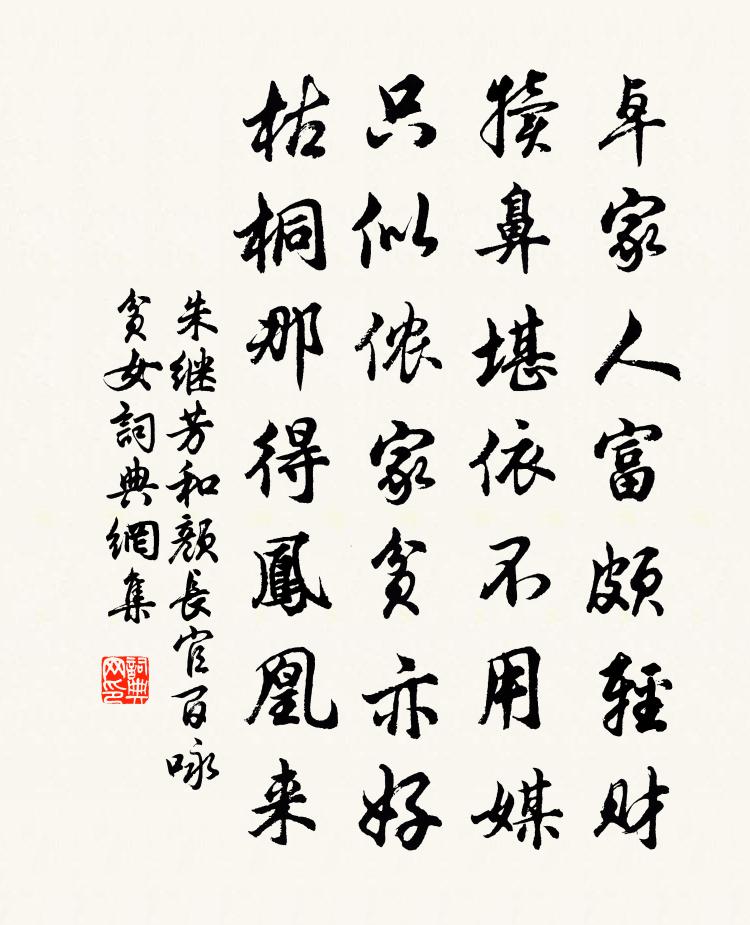 卓家人富頗輕財
犢鼻堪依不用媒
只似儂家貧亦好
枯桐那得鳳凰来
朱继芳和颜長官百咏
貧女詞典網集
詞典
网印